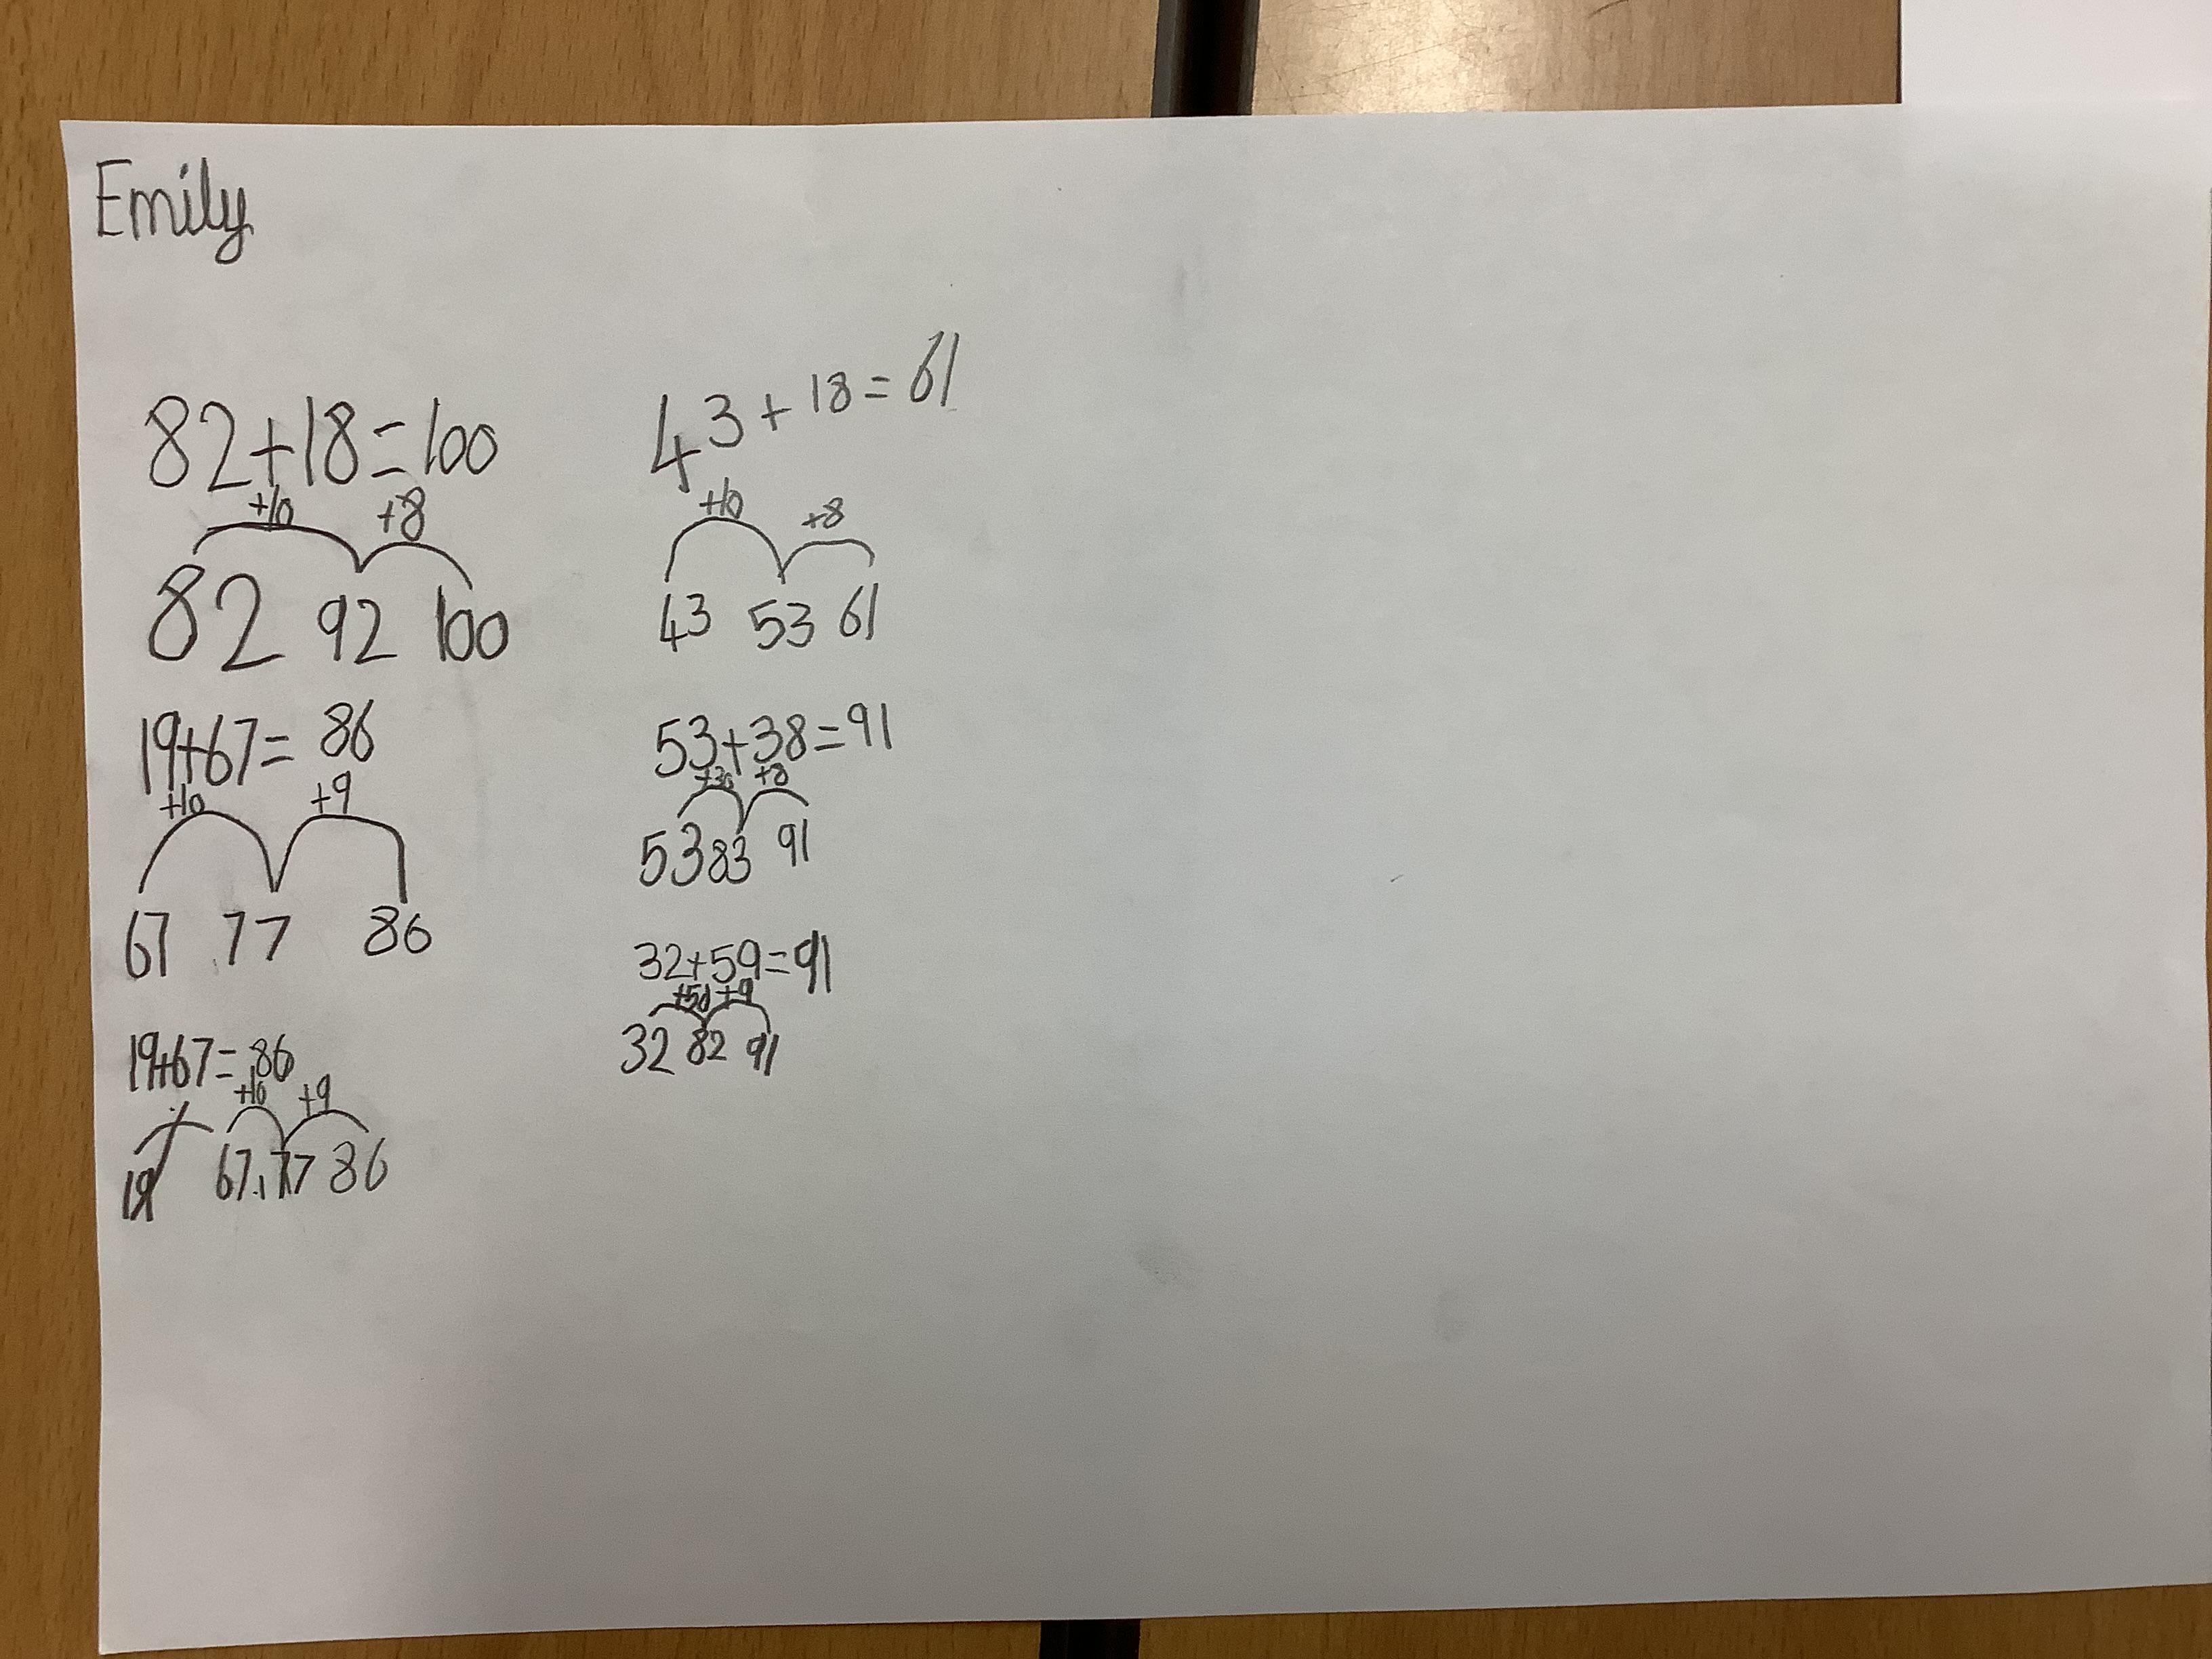 Emily
82+18=100
+10 +8
82 92 100
19+67= 86
+10 +9
67 77 86
19+67= 86
+10 +9
19 67 77 86
43 + 18 = 61
+10 +8
43 53 61
53+38=91
+30 +8
53 83 91
32+59=91
+50 +9
32 82 91